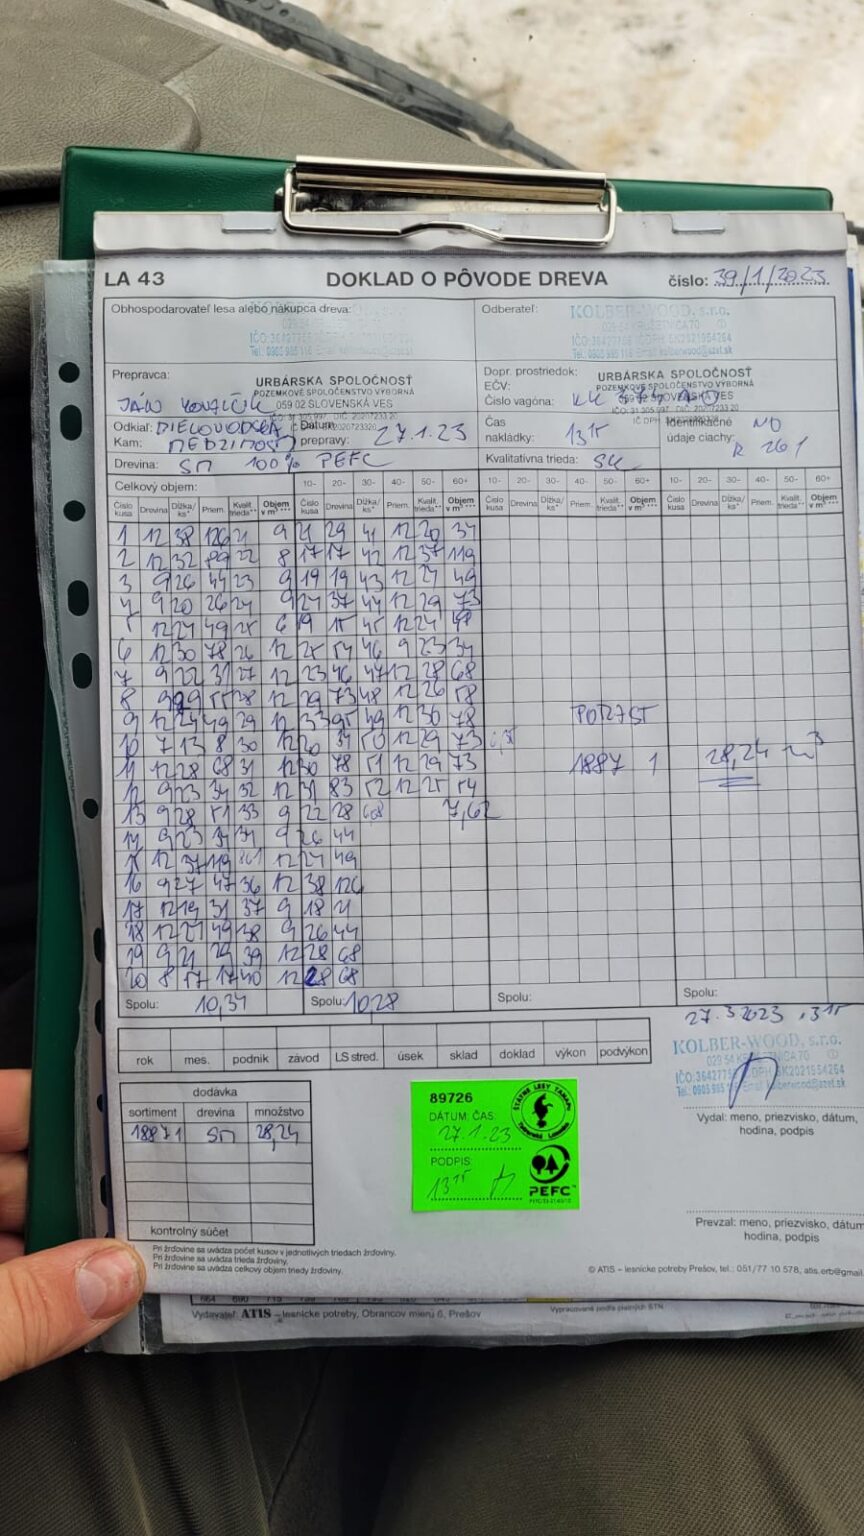 LA 43 DOKLAD O PÔVODE DREVA číslo: 39/1/2023
Obhospodarovateľ lesa alebo nákupca dreva:
Odberateľ:
KOLBER-WOOD, s.r.o.
Prepravca:
URBÁRSKA SPOLOČNOSŤ
POZEMKOVÉ SPOLOČENSTVO VÝBORNÁ
059 02 SLOVENSKÁ VES
JÁN
Dopr. prostriedok:
EČV:
Číslo vagóna: KK
URBÁRSKA SPOLOČNOSŤ
POZEMKOVÉ SPOLOČENSTVO VÝBORNÁ
059 02 SLOVENSKÁ VES
Odkiaľ:
Kam: MEDZIMOSTÍ
Dátum
prepravy: 27.1.23
Čas
nakládky: 13 15
Identifikačné
údaje ciachy: NO
R 261
Drevina: SM 100% PEFC
Kvalitatívna trieda:
Celkový objem: 10- 20- 30- 40- 50- 60+ 10- 20- 30- 40- 50- 60+
Číslo kusa Drevina Dĺžka/ks* Priem. Kvalit. trieda** Objem v m³ *** Číslo kusa Drevina Dĺžka/ks* Priem. Kvalit. trieda** Objem v m³ *** Číslo kusa Drevina Dĺžka/ks* Priem. Kvalit. trieda** Objem v m³ *** Číslo kusa Drevina Dĺžka/ks* Priem. Kvalit. trieda** Objem v m³ ***
1 12 38 126 21 9 21 29 41 12 20 34
2 12 32 89 22 8 17 17 42 12 37 119
3 9 26 44 23 9 19 19 43 12 24 49
4 9 20 26 24 9 27 37 44 12 29 73
12 24 49 25 6 19 15 45 12 24 49
6 12 30 78 26 12 25 54 46 9 23 34
7 9 22 31 27 12 23 46 47 12 28 68
8 9 29 55 28 12 29 73 48 12 26 58
9 12 24 49 29 12 33 95 49 12 30 78
10 7 13 8 30 12 20 34 50 12 29 73
11 12 28 68 31 12 30 78 51 12 29 73
12 9 23 34 32 12 31 83 52 12 25 54
13 9 28 51 33 9 22 28 7,62
14 9 23 34 34 9 26 44
15 12 37 119 12 24 49
16 9 27 47 36 12 38 126
17 12 19 31 37 9 18 21
18 12 24 49 38 9 26 44
19 9 21 29 39 12 28 68
20 8 17 17 40 12 28 68
PORAST
1887 1 28,24 m³
Spolu: 10,34 Spolu: 10,28 Spolu: Spolu:
27.3.2023
KOLBER-WOOD, s.r.o.
rok mes. podnik závod LS stred. úsek sklad doklad výkon podvýkon
Vydal: meno, priezvisko, dátum,
hodina, podpis
dodávka
sortiment drevina množstvo
1887 1 SM 28,24
kontrolný súčet
89726
DÁTUM: ČAS:
27.1.23
PODPIS:
13 15
ŠTÁTNE LESY TANAPU
TATRANSKÁ LOMNICA
PEFC
Prevzal: meno, priezvisko, dátum
hodina, podpis
Pri žrďovine sa uvádza počet kusov v jednotlivých triedach žrďoviny.
Pri žrďovine sa uvádza trieda žrďoviny.
Pri žrďovine sa uvádza celkový objem triedy žrďoviny.
© ATIS – lesnícke potreby Prešov, tel.: 051/77 10 578, atis.erb@gmail.
Vydavateľ: ATIS – lesnícke potreby, Obrancov mieru 6, Prešov